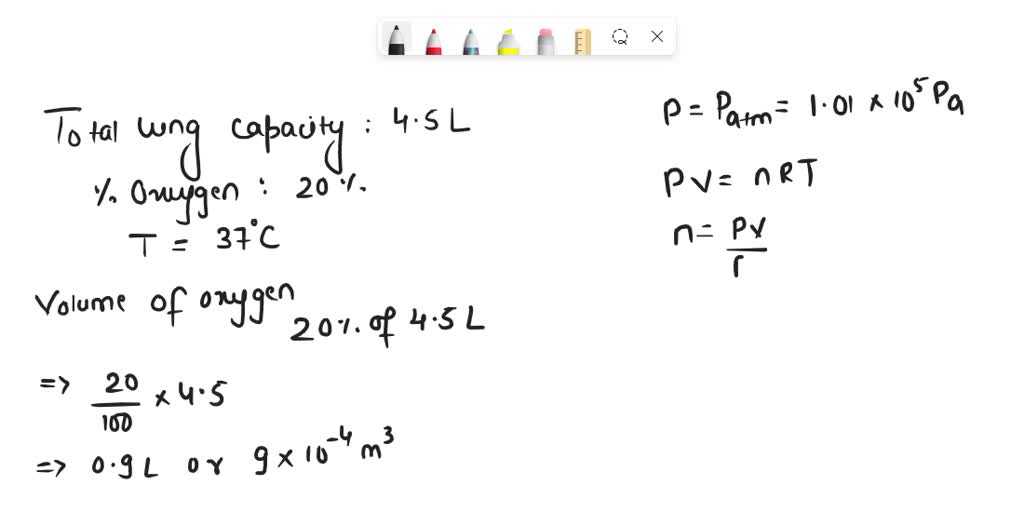 Total lung capacity : 4.5 L
% Oxygen : 20 %.
T = 37°C
Volume of oxygen
20% of 4.5 L
=> 20/100 × 4.5
=> 0.9 L or 9 × 10⁻⁴ m³
P = Patm = 1.01 × 10⁵ Pa
PV = nRT
n = PV/r